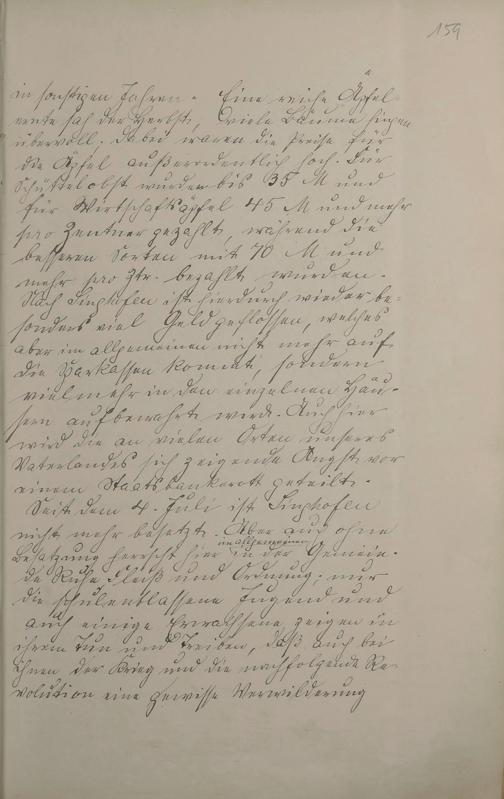 159
in sonstigen Jahren. Eine reiche Äpfel-
ernte sah der Herbst, viele Bäume hingen
übervoll. Dabei waren die Preise für
die Äpfel außerordentlich hoch. Für
Schüttelobst wurden bis 35 M und
für Wirtschaftsäpfel 45 M und mehr
pro Zentner gezahlt, während die
besseren Sorten mit 70 M und
mehr pro Ztr. bezahlt wurden.
Nach Singhofen ist hierdurch wieder be-
sonders viel Geld geflossen, welches
aber im allgemeinen nicht mehr auf
die Sparkassen kommt, sondern
vielmehr in den einzelnen Häu-
sern aufbewahrt wird. Auch hier
wird die an vielen Orten unseres
Vaterlandes sich zeigende Angst vor
einem Staatsbankerott geteilt.
Seit dem 4. Juli ist Singhofen
nicht mehr besetzt. Aber auch ohne
Besatzung herrscht hier im allgemeinen in der Gemein-
de Ruhe Fleiß und Ordnung; nur
die schulentlassene Jugend und
auch einige Erwachsene zeigen in
ihrem Tun und Treiben, daß auch bei
ihnen der Krieg und die nachfolgende Re-
volution eine gewisse Verwilderung